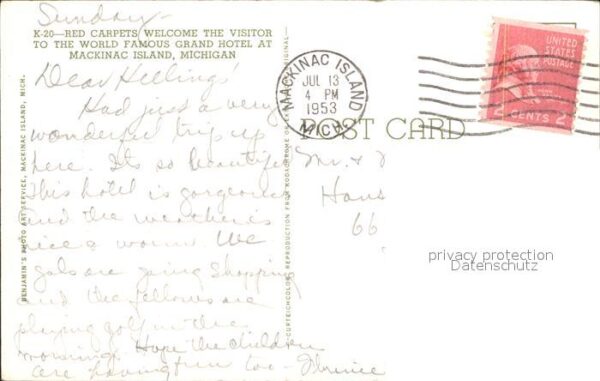 Sunday -
K-20—RED CARPETS WELCOME THE VISITOR
TO THE WORLD FAMOUS GRAND HOTEL AT
MACKINAC ISLAND, MICHIGAN
Dear
Had just a very
wonderful trip up
here. It's so beautiful
This hotel is gorgeous
and the weather is
nice & warm. We
gals are going shopping
and the fellows are
playing golf in the
morning. Hope the children
are having fun too - Florence
BENJAMIN'S PHOTO ART SERVICE, MACKINAC ISLAND, MICH.
CURTEICHCOLOR REPRODUCTION FROM KODACHROME OR ORIGINAL
MACKINAC ISLAND
JUL 13
4 PM
1953
MICH.
POST CARD
UNITED
STATES
POSTAGE
2 CENTS 2
Mr. &
66
privacy protection
Datenschutz